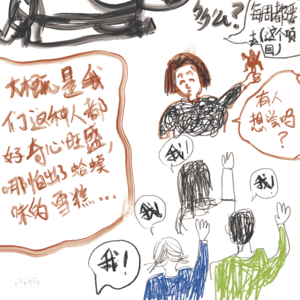 多么？
每周都要
去(这个项
目)
大概是我
们这种人都
好奇心旺盛，
哪怕出了蛤蟆
味的雪糕…
有人
想尝吗？
我！
我！
我！
我！